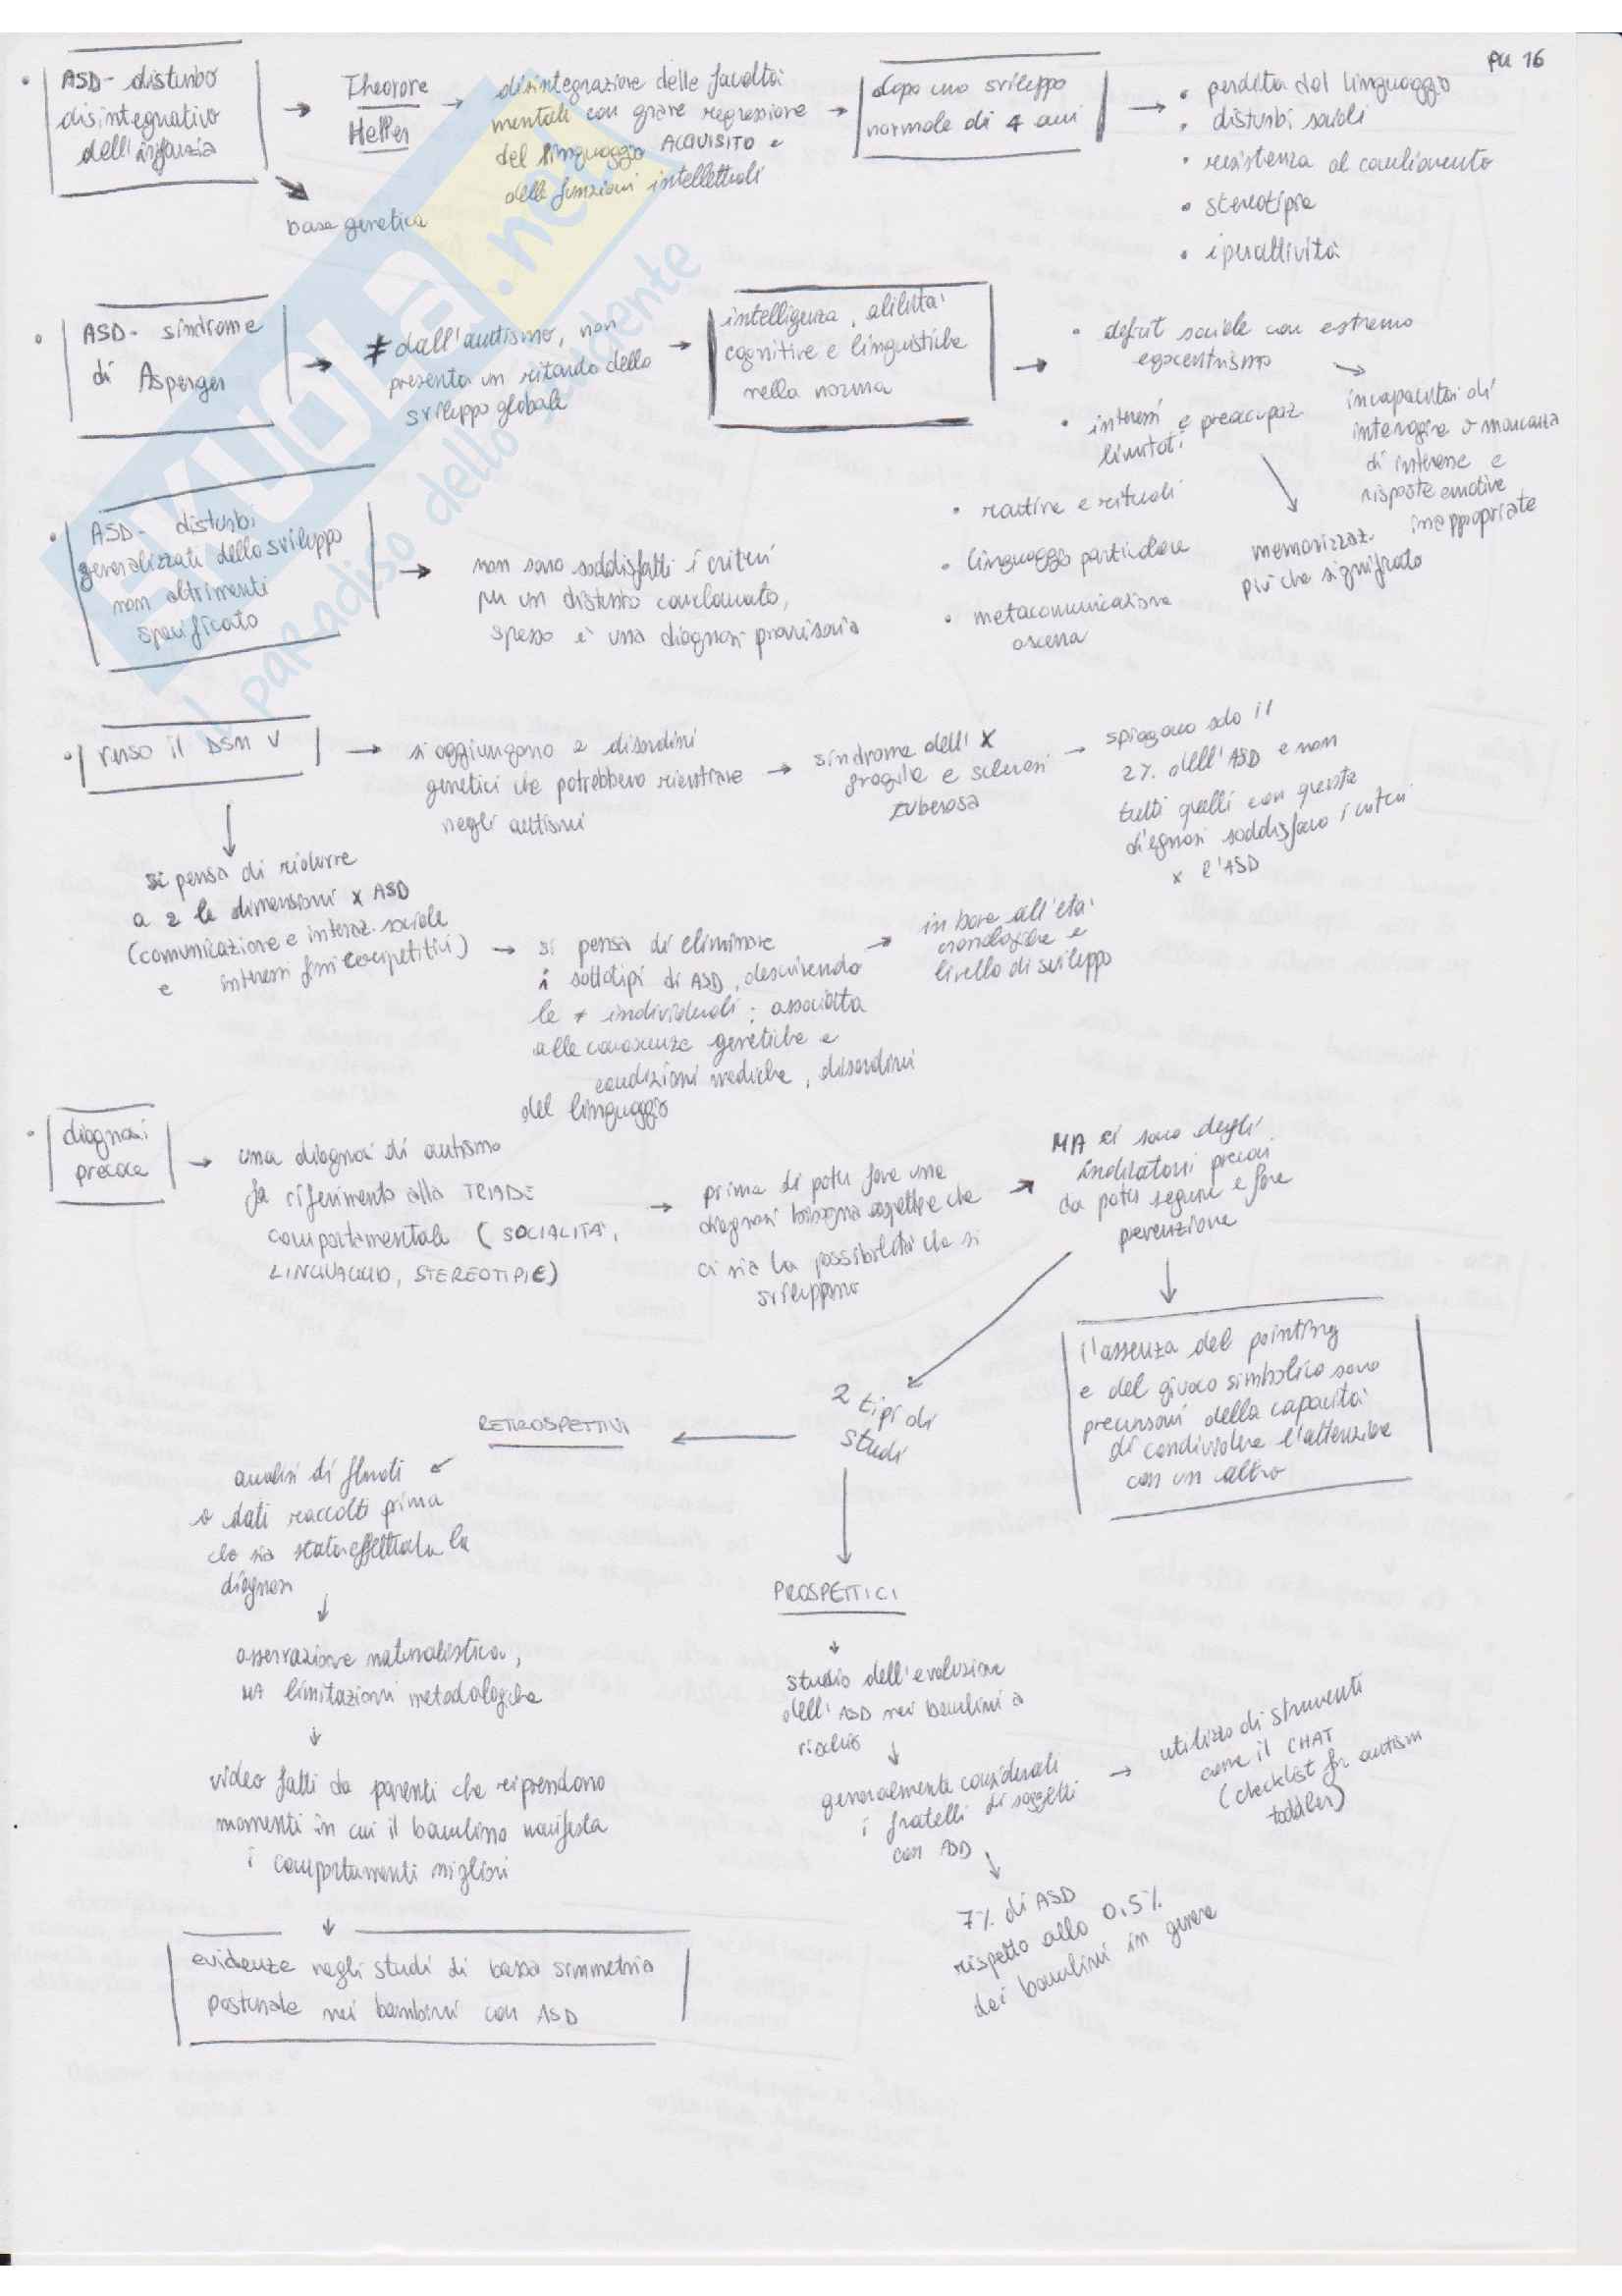 PU 16
• ASD - disturbo
disintegrativo
dell'infanzia
base genetica
Theorore
Heller
disintegrazione delle facoltà
mentali con grave regressione
del linguaggio ACQUISITO e
delle funzioni intellettuali
dopo uno sviluppo
normale di 4 anni
• perdita del linguaggio
• disturbi sociali
• resistenza al cambiamento
• stereotipie
• iperattività
• ASD - sindrome
di Asperger
≠ dall'autismo, non
presenta un ritardo dello
sviluppo globale
intelligenza, abilità
cognitive e linguistiche
nella norma
• deficit sociale con estremo
egocentrismo
incapacità di
interagire o mancanza
di interesse e
risposte emotive
inappropriate
• interessi e preoccupaz.
limitati
memorizzaz.
più che significato
• routine e rituali
• linguaggio particolare
• metacomunicazione
oscena
• ASD - disturbi
generalizzati dello sviluppo
non altrimenti
specificato
non sono soddisfatti i criteri
per un disturbo conclamato,
spesso è una diagnosi provvisoria
• verso il DSM V
si aggiungono 2 disordini
genetici che potrebbero rientrare
negli autismi
sindrome dell'X
fragile e sclerosi
tuberosa
spiegano solo il
2% dell'ASD e non
tutti quelli con questa
diagnosi soddisfano i criteri
x l'ASD
si pensa di ridurre
a 2 le dimensioni x ASD
(comunicazione e interaz. sociale
e interessi fissi e ripetitivi)
si pensa di eliminare
i sottotipi di ASD, descrivendo
le ≠ individuali: associata
alle conoscenze genetiche e
condizioni mediche, disordini
del linguaggio
in base all'età
cronologica e
livello di sviluppo
• diagnosi
precoce
una diagnosi di autismo
fa riferimento alla TRIADE
comportamentale (SOCIALITÀ,
LINGUAGGIO, STEREOTIPIE)
prima di poter fare una
diagnosi bisogna aspettare che
ci sia la possibilità che si
sviluppino
MA ci sono degli
indicatori precoci
da poter seguire e fare
prevenzione
l'assenza del pointing
e del gioco simbolico sono
precursori della capacità
di condividere l'attenzione
con un altro
2 tipi di
studi
RETROSPETTIVI
analisi di filmati
o dati raccolti prima
che sia stata effettuata la
diagnosi
osservazione naturalistica,
MA limitazioni metodologiche
video fatti da parenti che riprendono
momenti in cui il bambino manifesta
i comportamenti migliori
evidenze negli studi di bassa simmetria
posturale nei bambini con ASD
PROSPETTICI
studio dell'evoluzione
dell'ASD nei bambini a
rischio
generalmente considerati
i fratelli di soggetti
con ASD
utilizzo di strumenti
come il CHAT
(checklist for autism
toddler)
7% di ASD
rispetto allo 0,5%
dei bambini in genere
SKUOLA.net
il paradiso dello studente